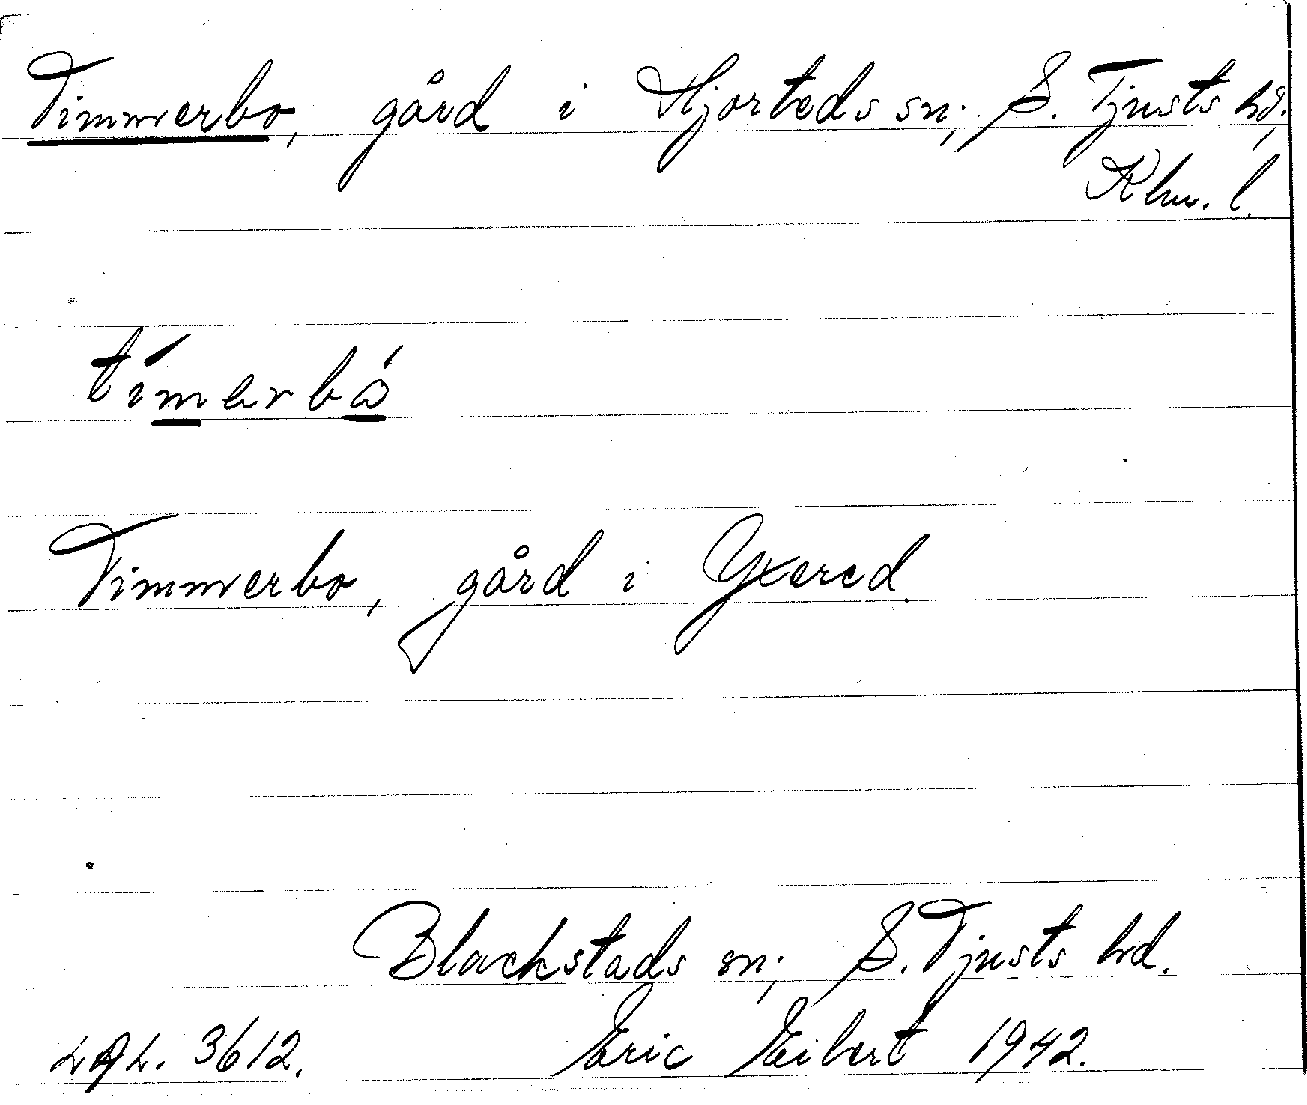 Timmerbo, gård i Hjorteds sn; S. Tjusts hd;
Klm. l.
tímerbó
Timmerbo, gård i Yxered.
Blackstads sn; S. Tjusts hd.
LAL. 3612. Eric Eibert 1942.